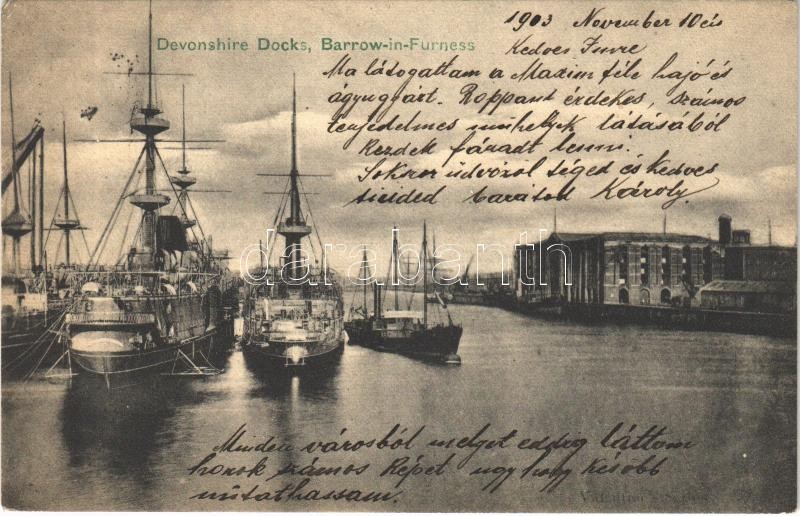 1903 November 10én
Devonshire Docks, Barrow-in-Furness
Kedves Imre
Ma látogattam a Maxim féle hajó és
ágyugyárt. Roppant érdekes, számos
terjedelmes műhelyek látásából
Kezdek fáradt lenni.
Sokszor üdvözöl téged és kedves
szüleid barátod Károly
darabanth
Minden városból melyet eddig láttam
hozok számos Képet ugy hogy később
mutathassam.
Valentine's Series